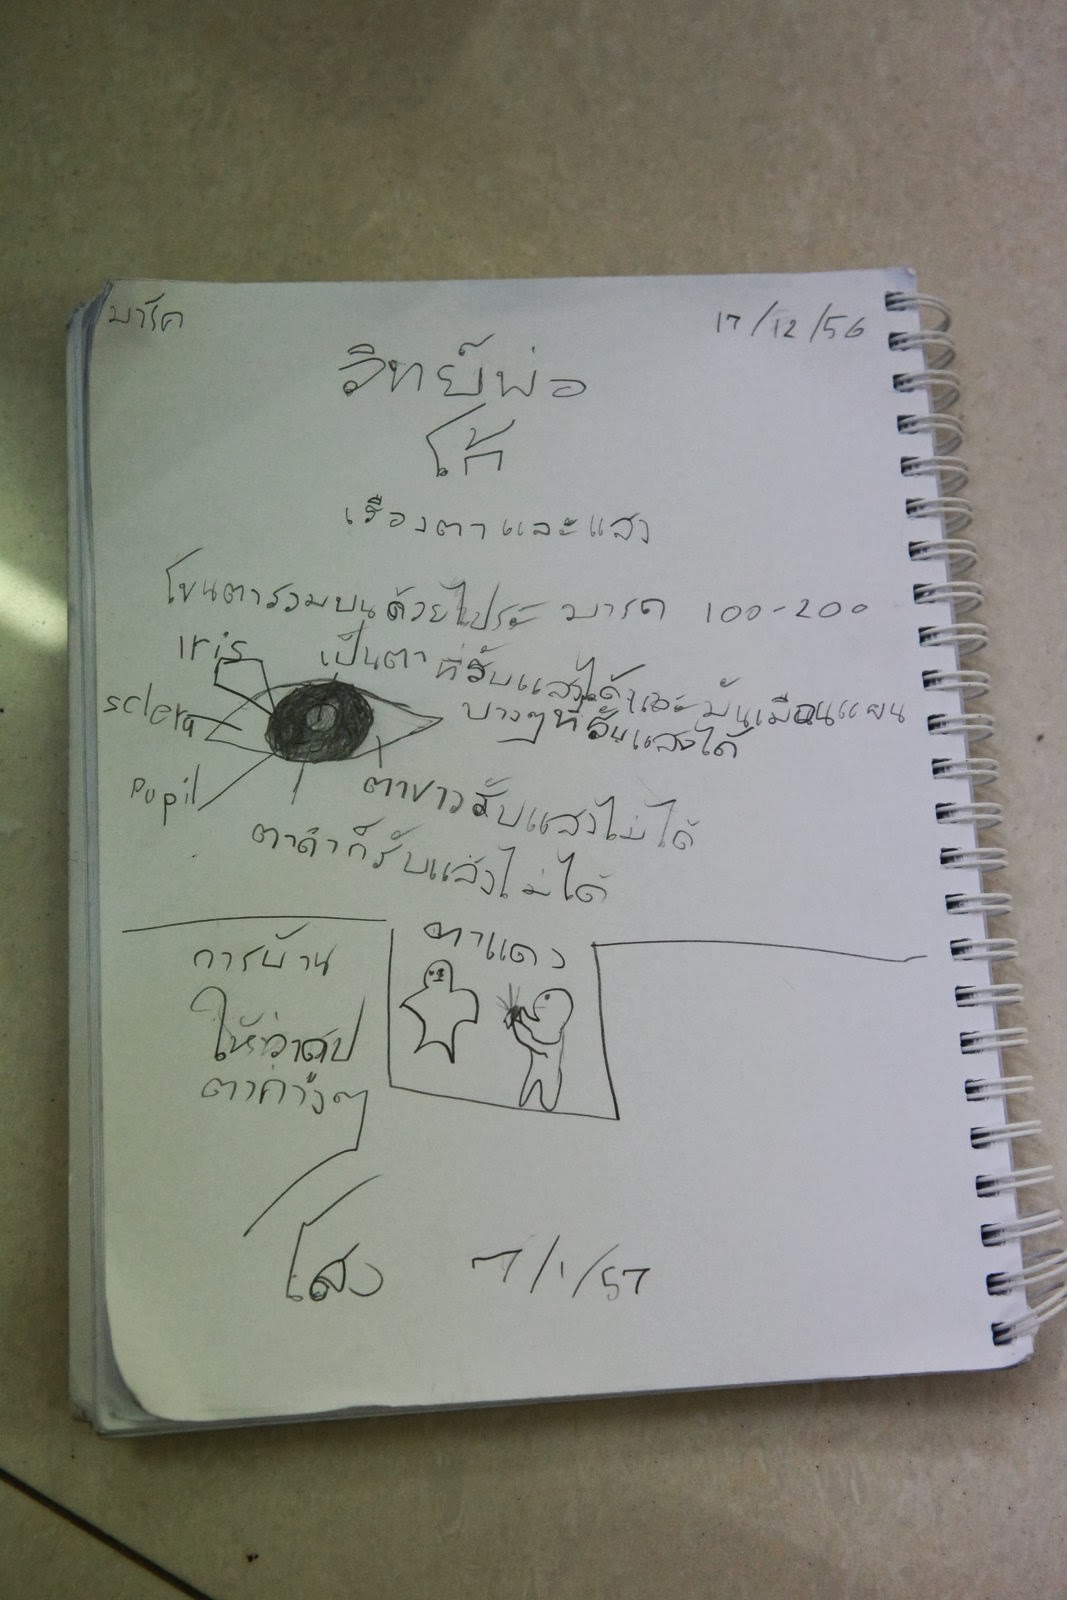 มาร์ค 17/12/56
วิทย์พ่อ
โก้
เรืองตาและแสง
โขนตารวมบนด้วยไประ มารค 100-200
iris เป็นตา ที่รับแสงได้และมันเมือนแผน
sclera บางๆที่รับแสงได้
pupil ตาขาวรับแสงไม่ได้
ตาดำก็รับแสงไม่ได้
การบ้าน ตาแดง
ให้
ตา
โสง 7/1/57